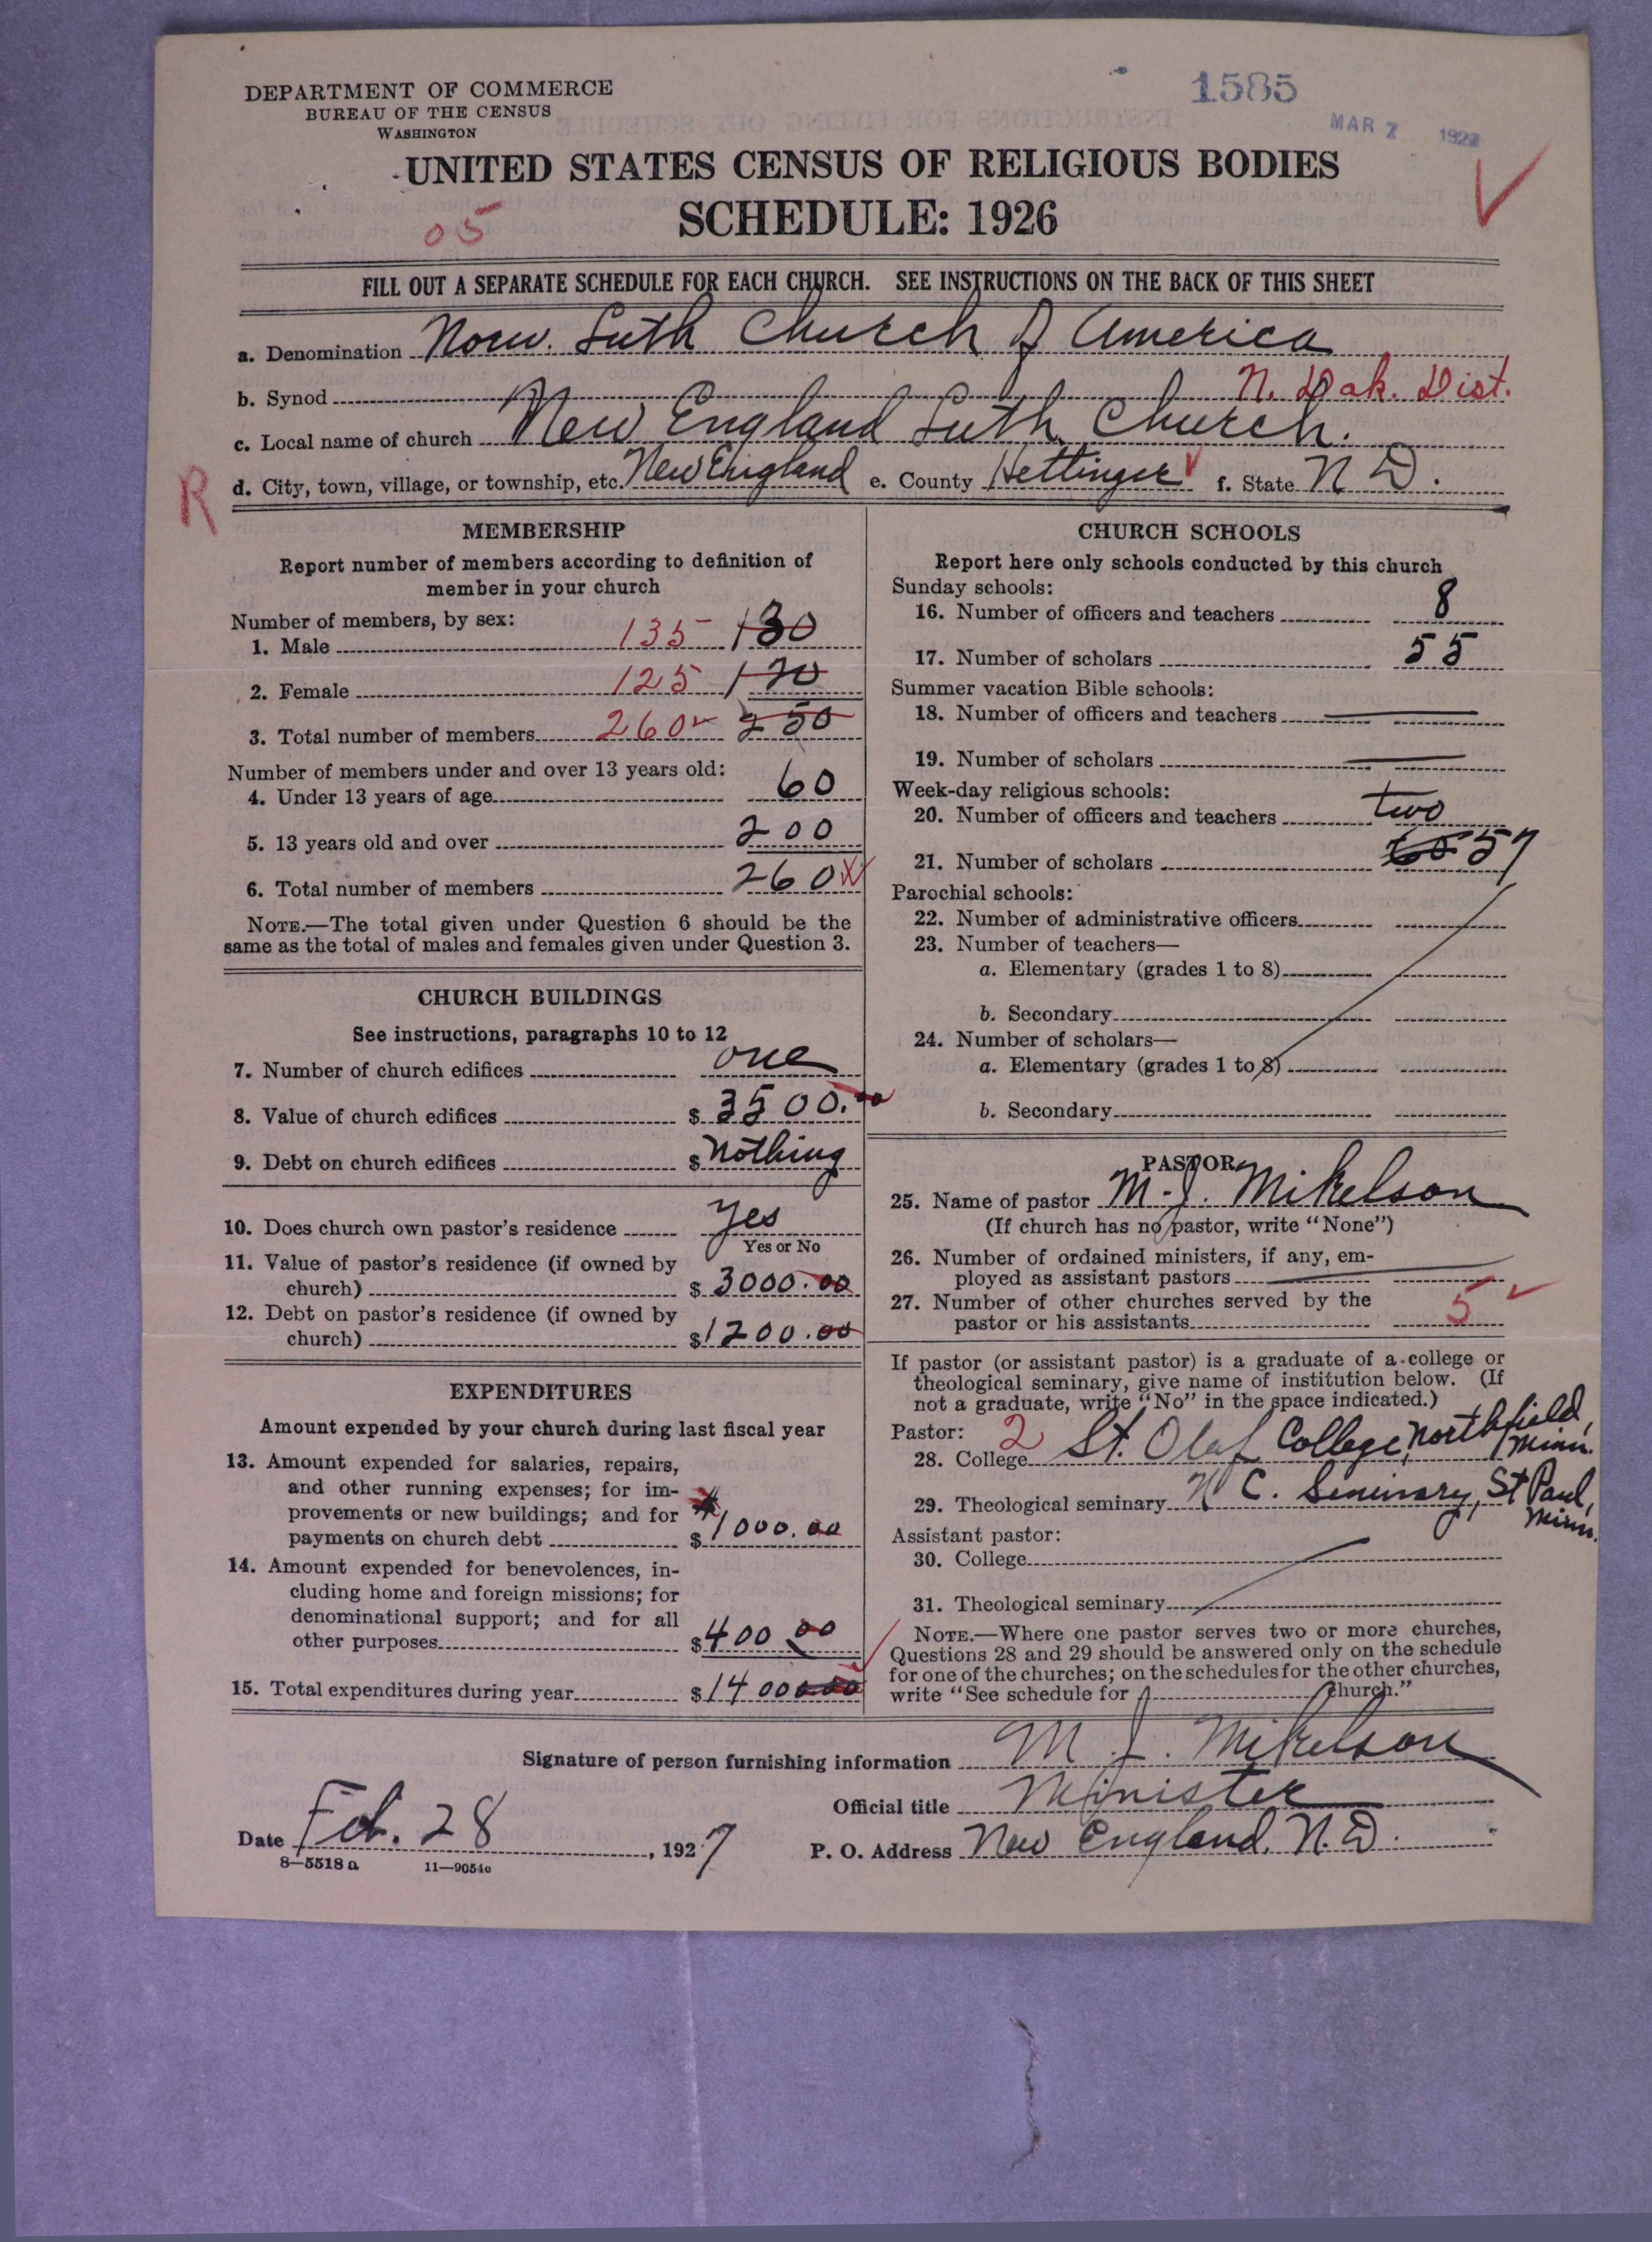 DEPARTMENT OF COMMERCE
BUREAU OF THE CENSUS
WASHINGTON
1585
MAR 7 1927
UNITED STATES CENSUS OF RELIGIOUS BODIES
SCHEDULE: 1926
05
FILL OUT A SEPARATE SCHEDULE FOR EACH CHURCH. SEE INSTRUCTIONS ON THE BACK OF THIS SHEET
a. Denomination Norw. Luth Church of America
b. Synod N. Dak. Dist.
c. Local name of church New England Luth. Church.
R d. City, town, village, or township, etc. New England e. County Hettinger f. State N D.
MEMBERSHIP
Report number of members according to definition of
member in your church
Number of members, by sex:
1. Male 135 130
2. Female 125 120
3. Total number of members 260 250
Number of members under and over 13 years old:
4. Under 13 years of age 60
5. 13 years old and over 200
6. Total number of members 260
NOTE.—The total given under Question 6 should be the
same as the total of males and females given under Question 3.
CHURCH BUILDINGS
See instructions, paragraphs 10 to 12
7. Number of church edifices one
8. Value of church edifices $ 3500.00
9. Debt on church edifices $ Nothing
10. Does church own pastor's residence Yes
Yes or No
11. Value of pastor's residence (if owned by
church) $ 3000.00
12. Debt on pastor's residence (if owned by
church) $ 1200.00
EXPENDITURES
Amount expended by your church during last fiscal year
13. Amount expended for salaries, repairs,
and other running expenses; for im-
provements or new buildings; and for
payments on church debt $ 1000.00
14. Amount expended for benevolences, in-
cluding home and foreign missions; for
denominational support; and for all
other purposes $ 400 00
15. Total expenditures during year $ 1400
CHURCH SCHOOLS
Report here only schools conducted by this church
Sunday schools:
16. Number of officers and teachers 8
17. Number of scholars 55
Summer vacation Bible schools:
18. Number of officers and teachers
19. Number of scholars
Week-day religious schools:
20. Number of officers and teachers two
21. Number of scholars 57
Parochial schools:
22. Number of administrative officers
23. Number of teachers—
a. Elementary (grades 1 to 8)
b. Secondary
24. Number of scholars—
a. Elementary (grades 1 to 8)
b. Secondary
PASTOR
25. Name of pastor M. J. Mikelson
(If church has no pastor, write "None")
26. Number of ordained ministers, if any, em-
ployed as assistant pastors
27. Number of other churches served by the
pastor or his assistants 5
If pastor (or assistant pastor) is a graduate of a college or
theological seminary, give name of institution below. (If
not a graduate, write "No" in the space indicated.)
Pastor: 2
28. College St. Olaf College, Northfield, Minn.
29. Theological seminary C. Seminary, St Paul, Minn.
Assistant pastor:
30. College
31. Theological seminary
NOTE.—Where one pastor serves two or more churches,
Questions 28 and 29 should be answered only on the schedule
for one of the churches; on the schedules for the other churches,
write "See schedule for church."
Signature of person furnishing information M. J. Mikelson
Official title Minister
Date Feb. 28, 1927 P. O. Address New England, N.D.
8—5518 a 11—9054o